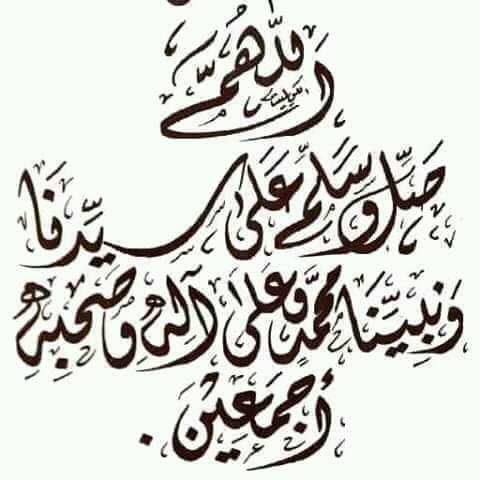 اللَّهُمَّ
صَلِّ وَسَلِّمْ عَلَى سَيِّدِنَا
وَنَبِيِّنَا مُحَمَّدٍ وَعَلَى آلِهِ وَصَحْبِهِ
أَجْمَعِيْن .